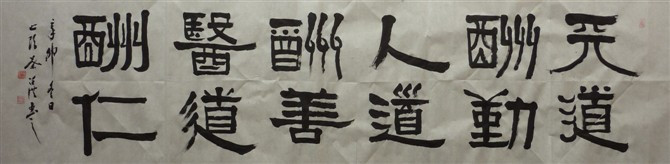 天道
酬勤
人道
酬善
醫道
酬仁
辛卯春日